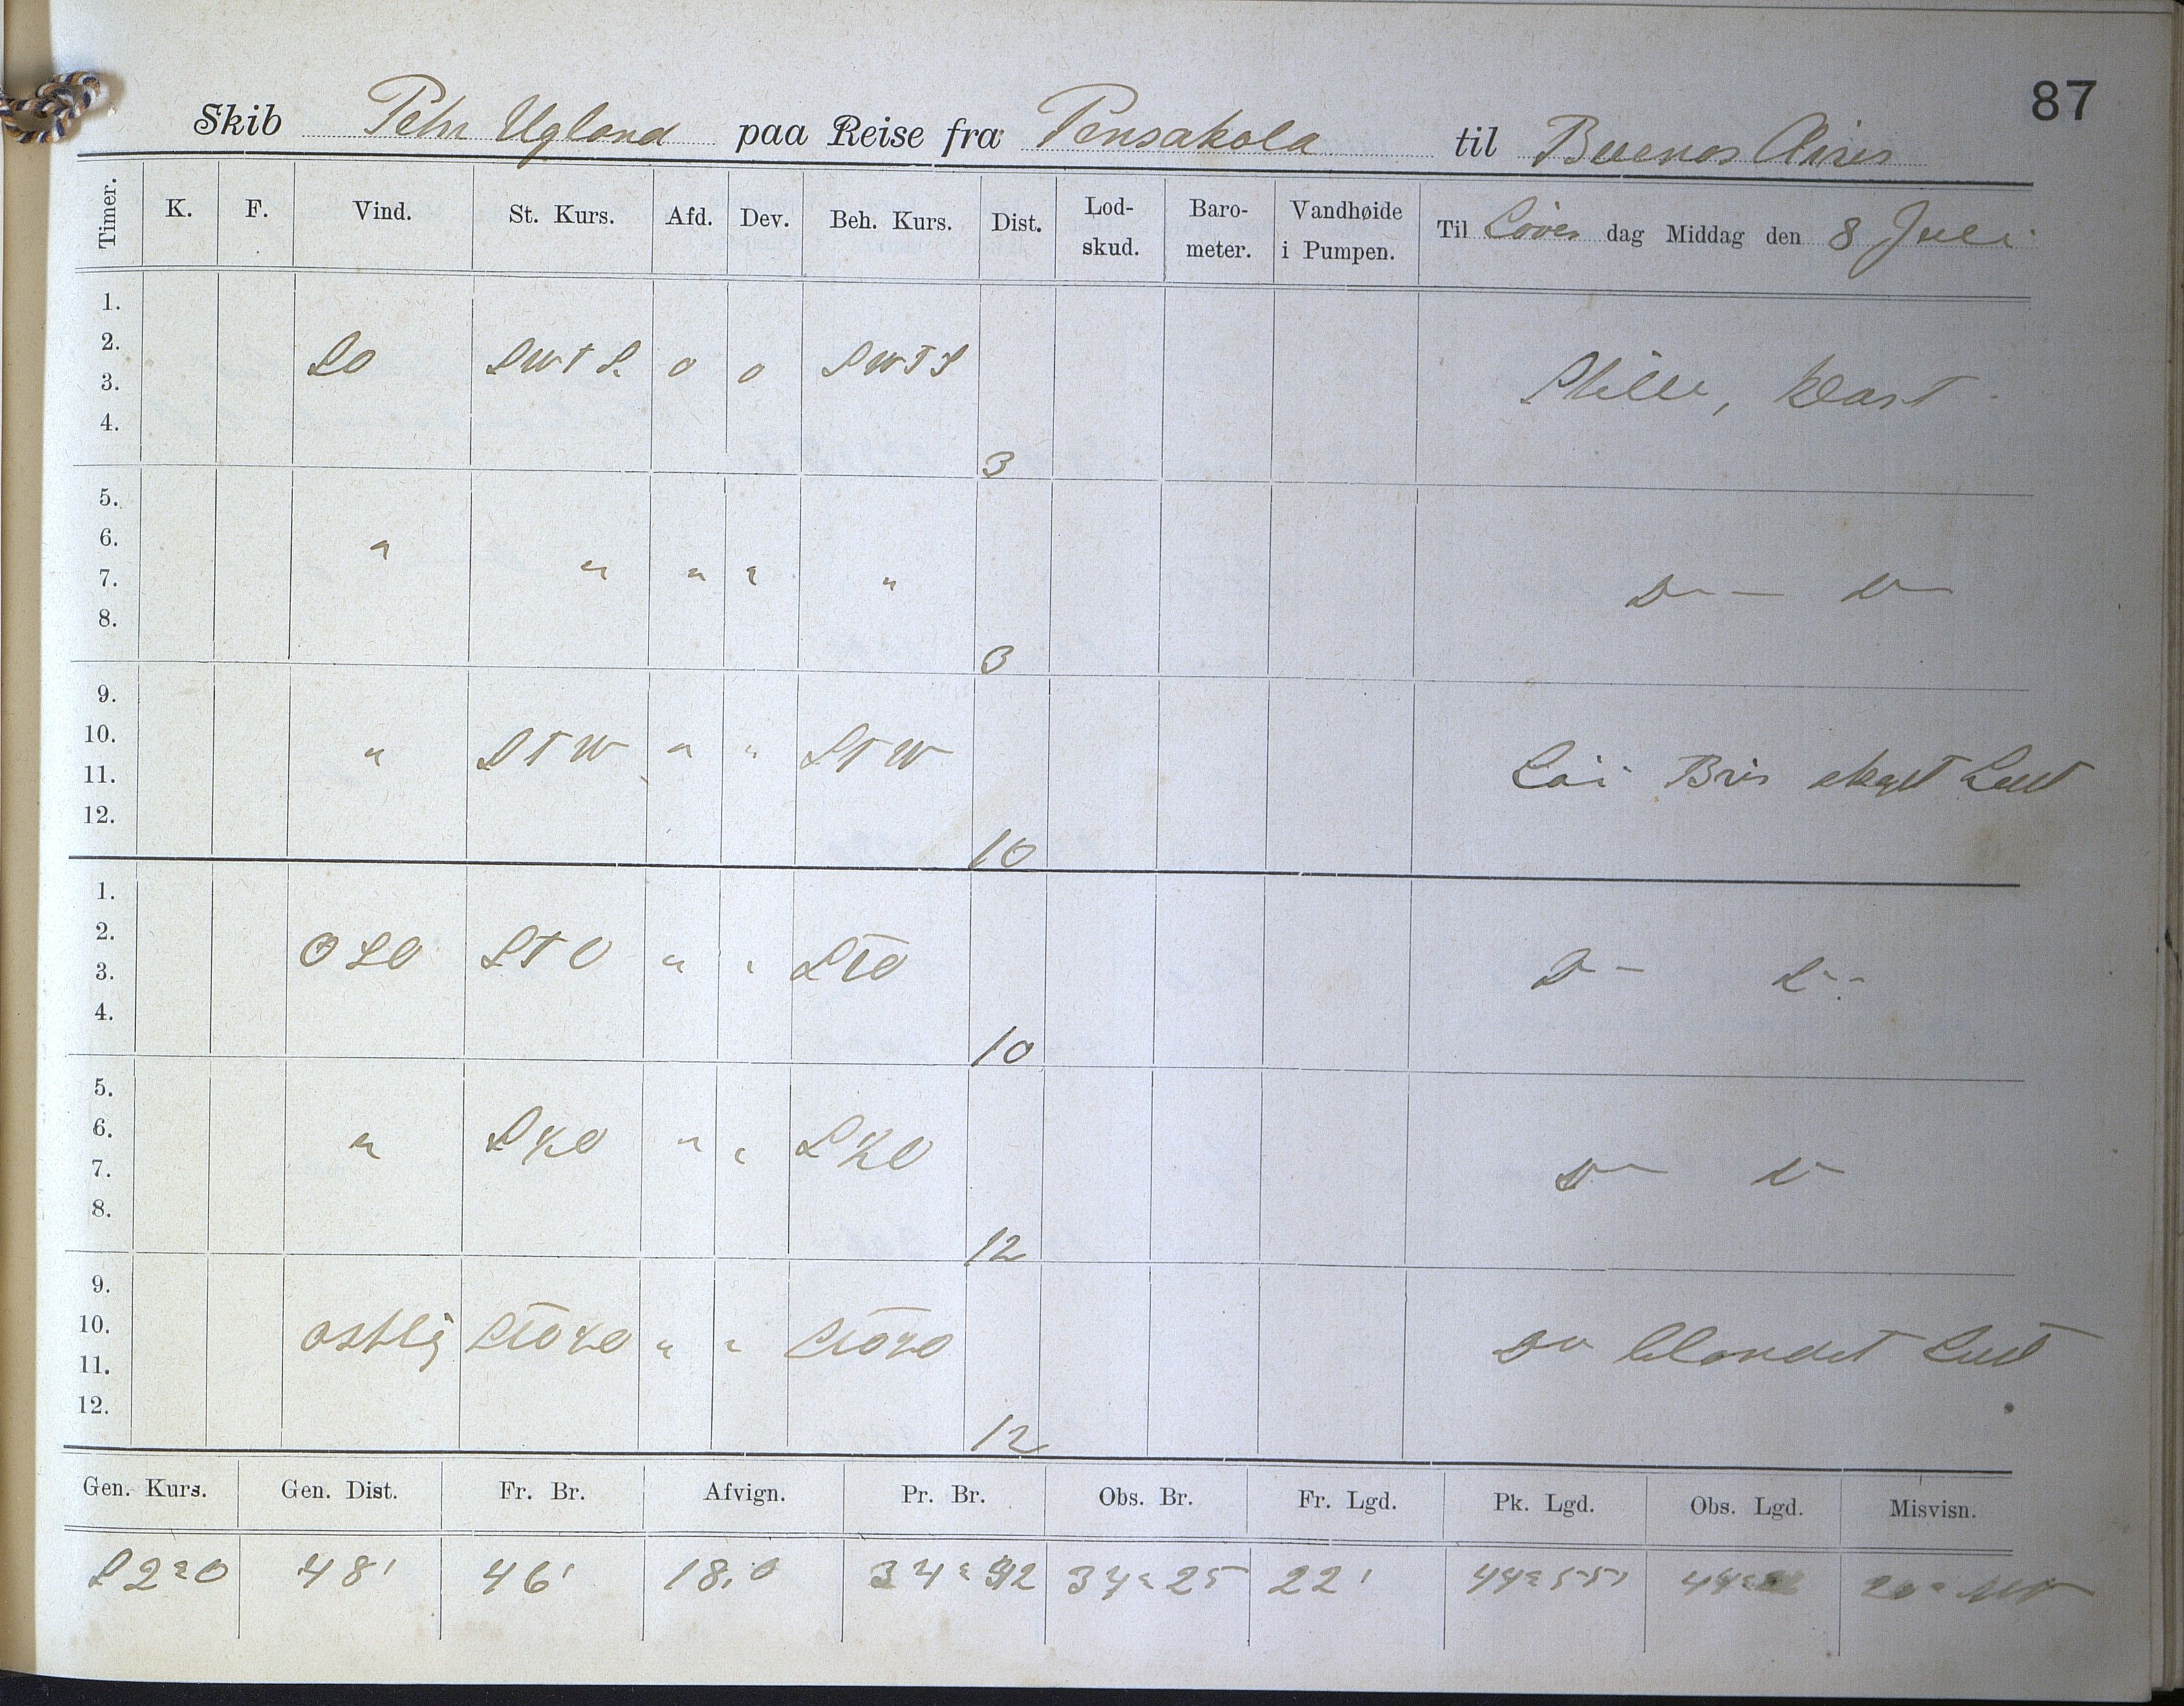 87
Skib Peter Ugland paa Reise fra Pensakola til Buenos Aires
Timer. K. F. Vind. St. Kurs. Afd. Dev. Beh. Kurs. Dist. Lod-skud. Baro-meter. Vandhøide i Pumpen. Til Løver dag Middag den 8 Juli
1.
2.
3. SO SWTS o o SWTS Stille, klart
4. 3
5.
6.
7. " " " " " Do — Do
8. 3
9.
10.
11. " STW " " STW Løi Bris skyet Luft
12. 10
1.
2.
3. OSO STO " " StO Do — Do
4. 10
5.
6.
7. " S½O " " S½O Do — Do
8. 12
9.
10.
11. ostlig StO½O " " StO½O Do blandet Luft
12. 12
Gen. Kurs. Gen. Dist. Fr. Br. Afvign. Pr. Br. Obs. Br. Fr. Lgd. Pk. Lgd. Obs. Lgd. Misvisn.
48' 46' 18,0 34° 25 22' 44° 55' 44°